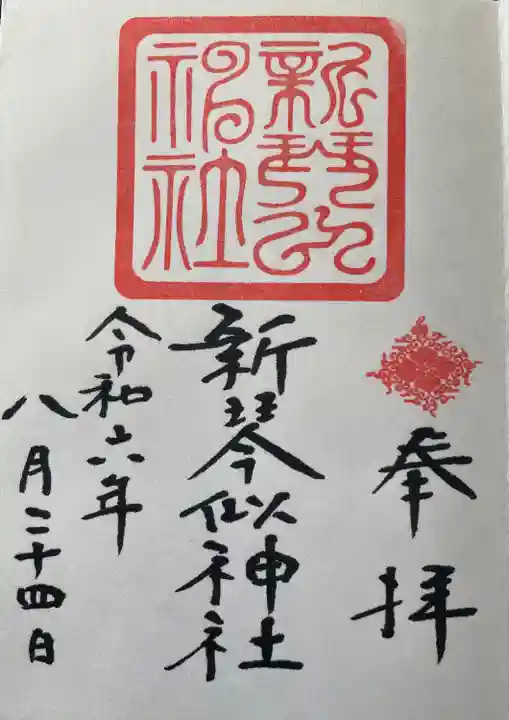 奉拝
新琴似神社
新琴似神社
令和六年
八月二十四日